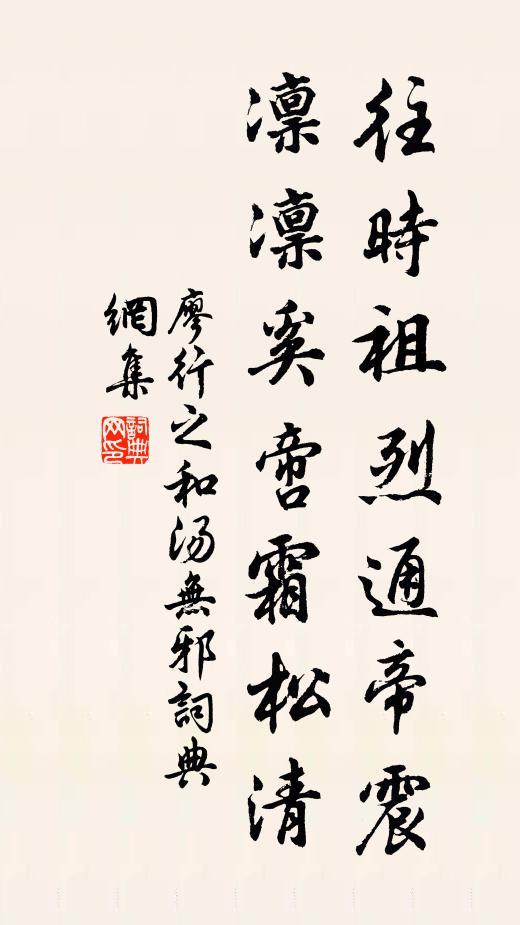 往時祖烈通帝震
凛凛奚啻霜松清
廖行之和汤無邪詞典
網集
詞典
网印